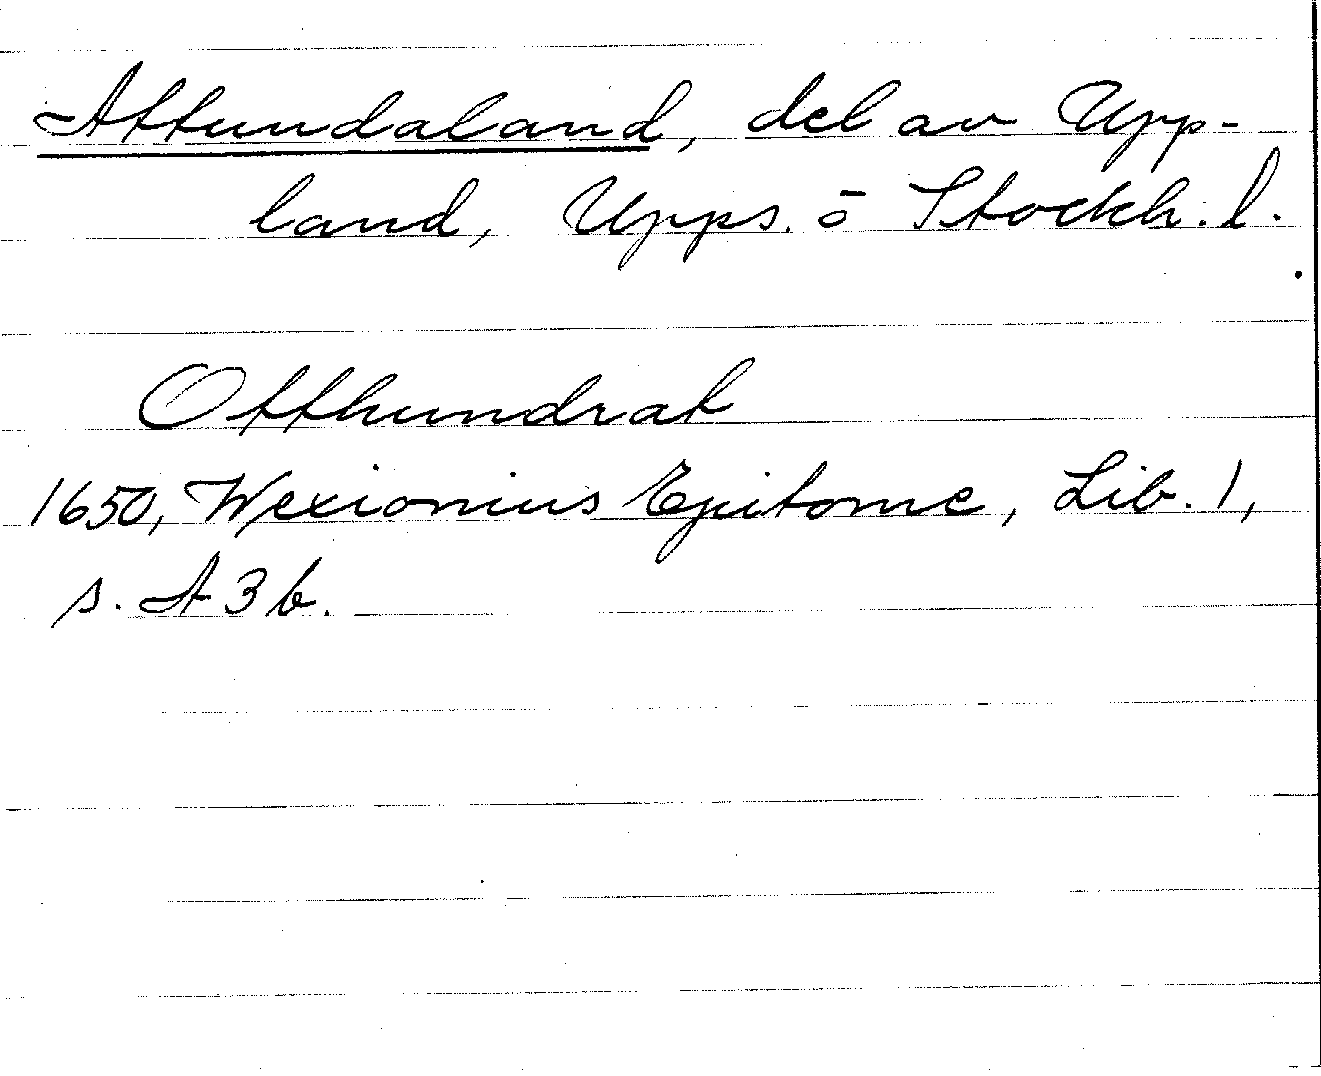 Attundaland, del av Upp-
land, Upps. o Stockh. l.
Otthundrat
1650, Wexionius Epitome, Lib. 1,
s. A 3 b.